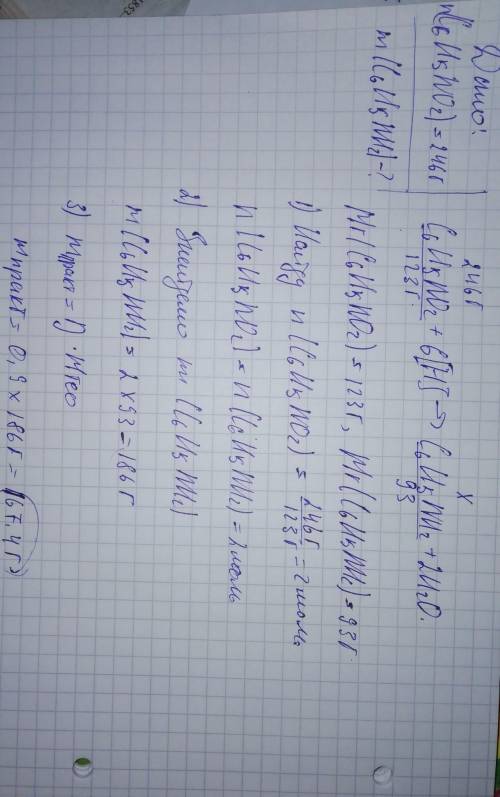 Дано:
m(C6H5NO2) = 246г
m(C6H5NH2) - ?
246г x
C6H5NO2 + 6[H] → C6H5NH2 + 2H2O.
123г. 93
Mr(C6H5NO2) = 123г, Mr(C6H5NH2) = 93г.
1) Найду n(C6H5NO2) = 246г / 123г = 2 моль
n(C6H5NO2) = n(C6H5NH2) = 2 моль
2) m(C6H5NH2)
m(C6H5NH2) = 2 x 93 = 186г
3) mпракт = η · mтео
mпракт = 0,9 x 186г = 167,4г